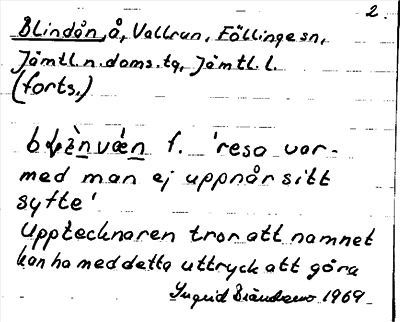 2.
Blindån, å, Vallrun, Föllinge sn,
Jämtl. n. doms. tg, Jämtl. l.
(forts.)
f. 'resa var-
med man ej uppnår sitt
syfte'
Upptecknaren tror att namnet
kan ha med detta uttryck att göra
Ingrid 1969